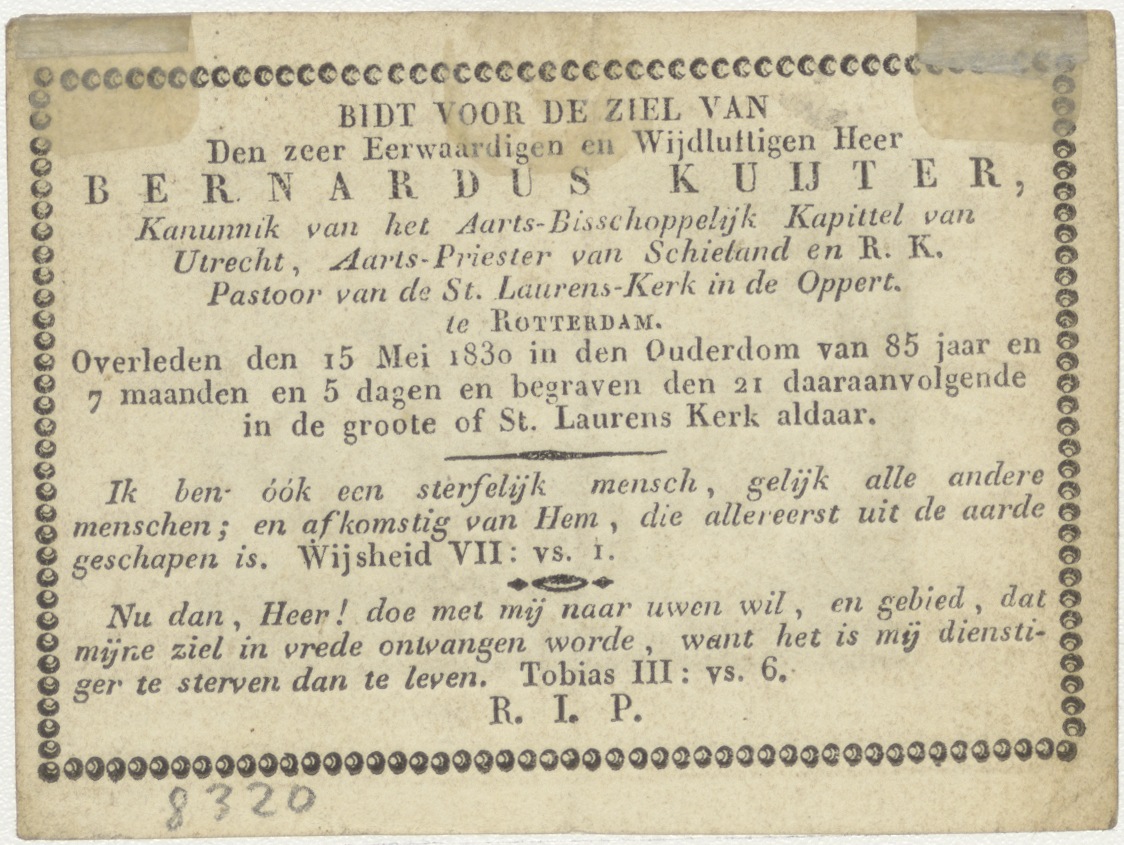 BIDT VOOR DE ZIEL VAN
Den zeer Eerwaardigen en Wijdluftigen Heer
BERNARDUS KUIJTER,
Kanunnik van het Aarts-Bisschoppelijk Kapittel van
Utrecht, Aarts-Priester van Schieland en R. K.
Pastoor van de St. Laurens-Kerk in de Oppert.
te ROTTERDAM.
Overleden den 15 Mei 1830 in den Ouderdom van 85 jaar en
7 maanden en 5 dagen en begraven den 21 daaraanvolgende
in de groote of St. Laurens Kerk aldaar.
Ik ben óók een sterfelijk mensch, gelijk alle andere
menschen; en afkomstig van Hem, die allereerst uit de aarde
geschapen is. Wijsheid VII: vs. 1.
Nu dan, Heer! doe met mij naar uwen wil, en gebied, dat
mijne ziel in vrede ontvangen worde, want het is mij diensti-
ger te sterven dan te leven. Tobias III: vs. 6.
R. I. P.
8320